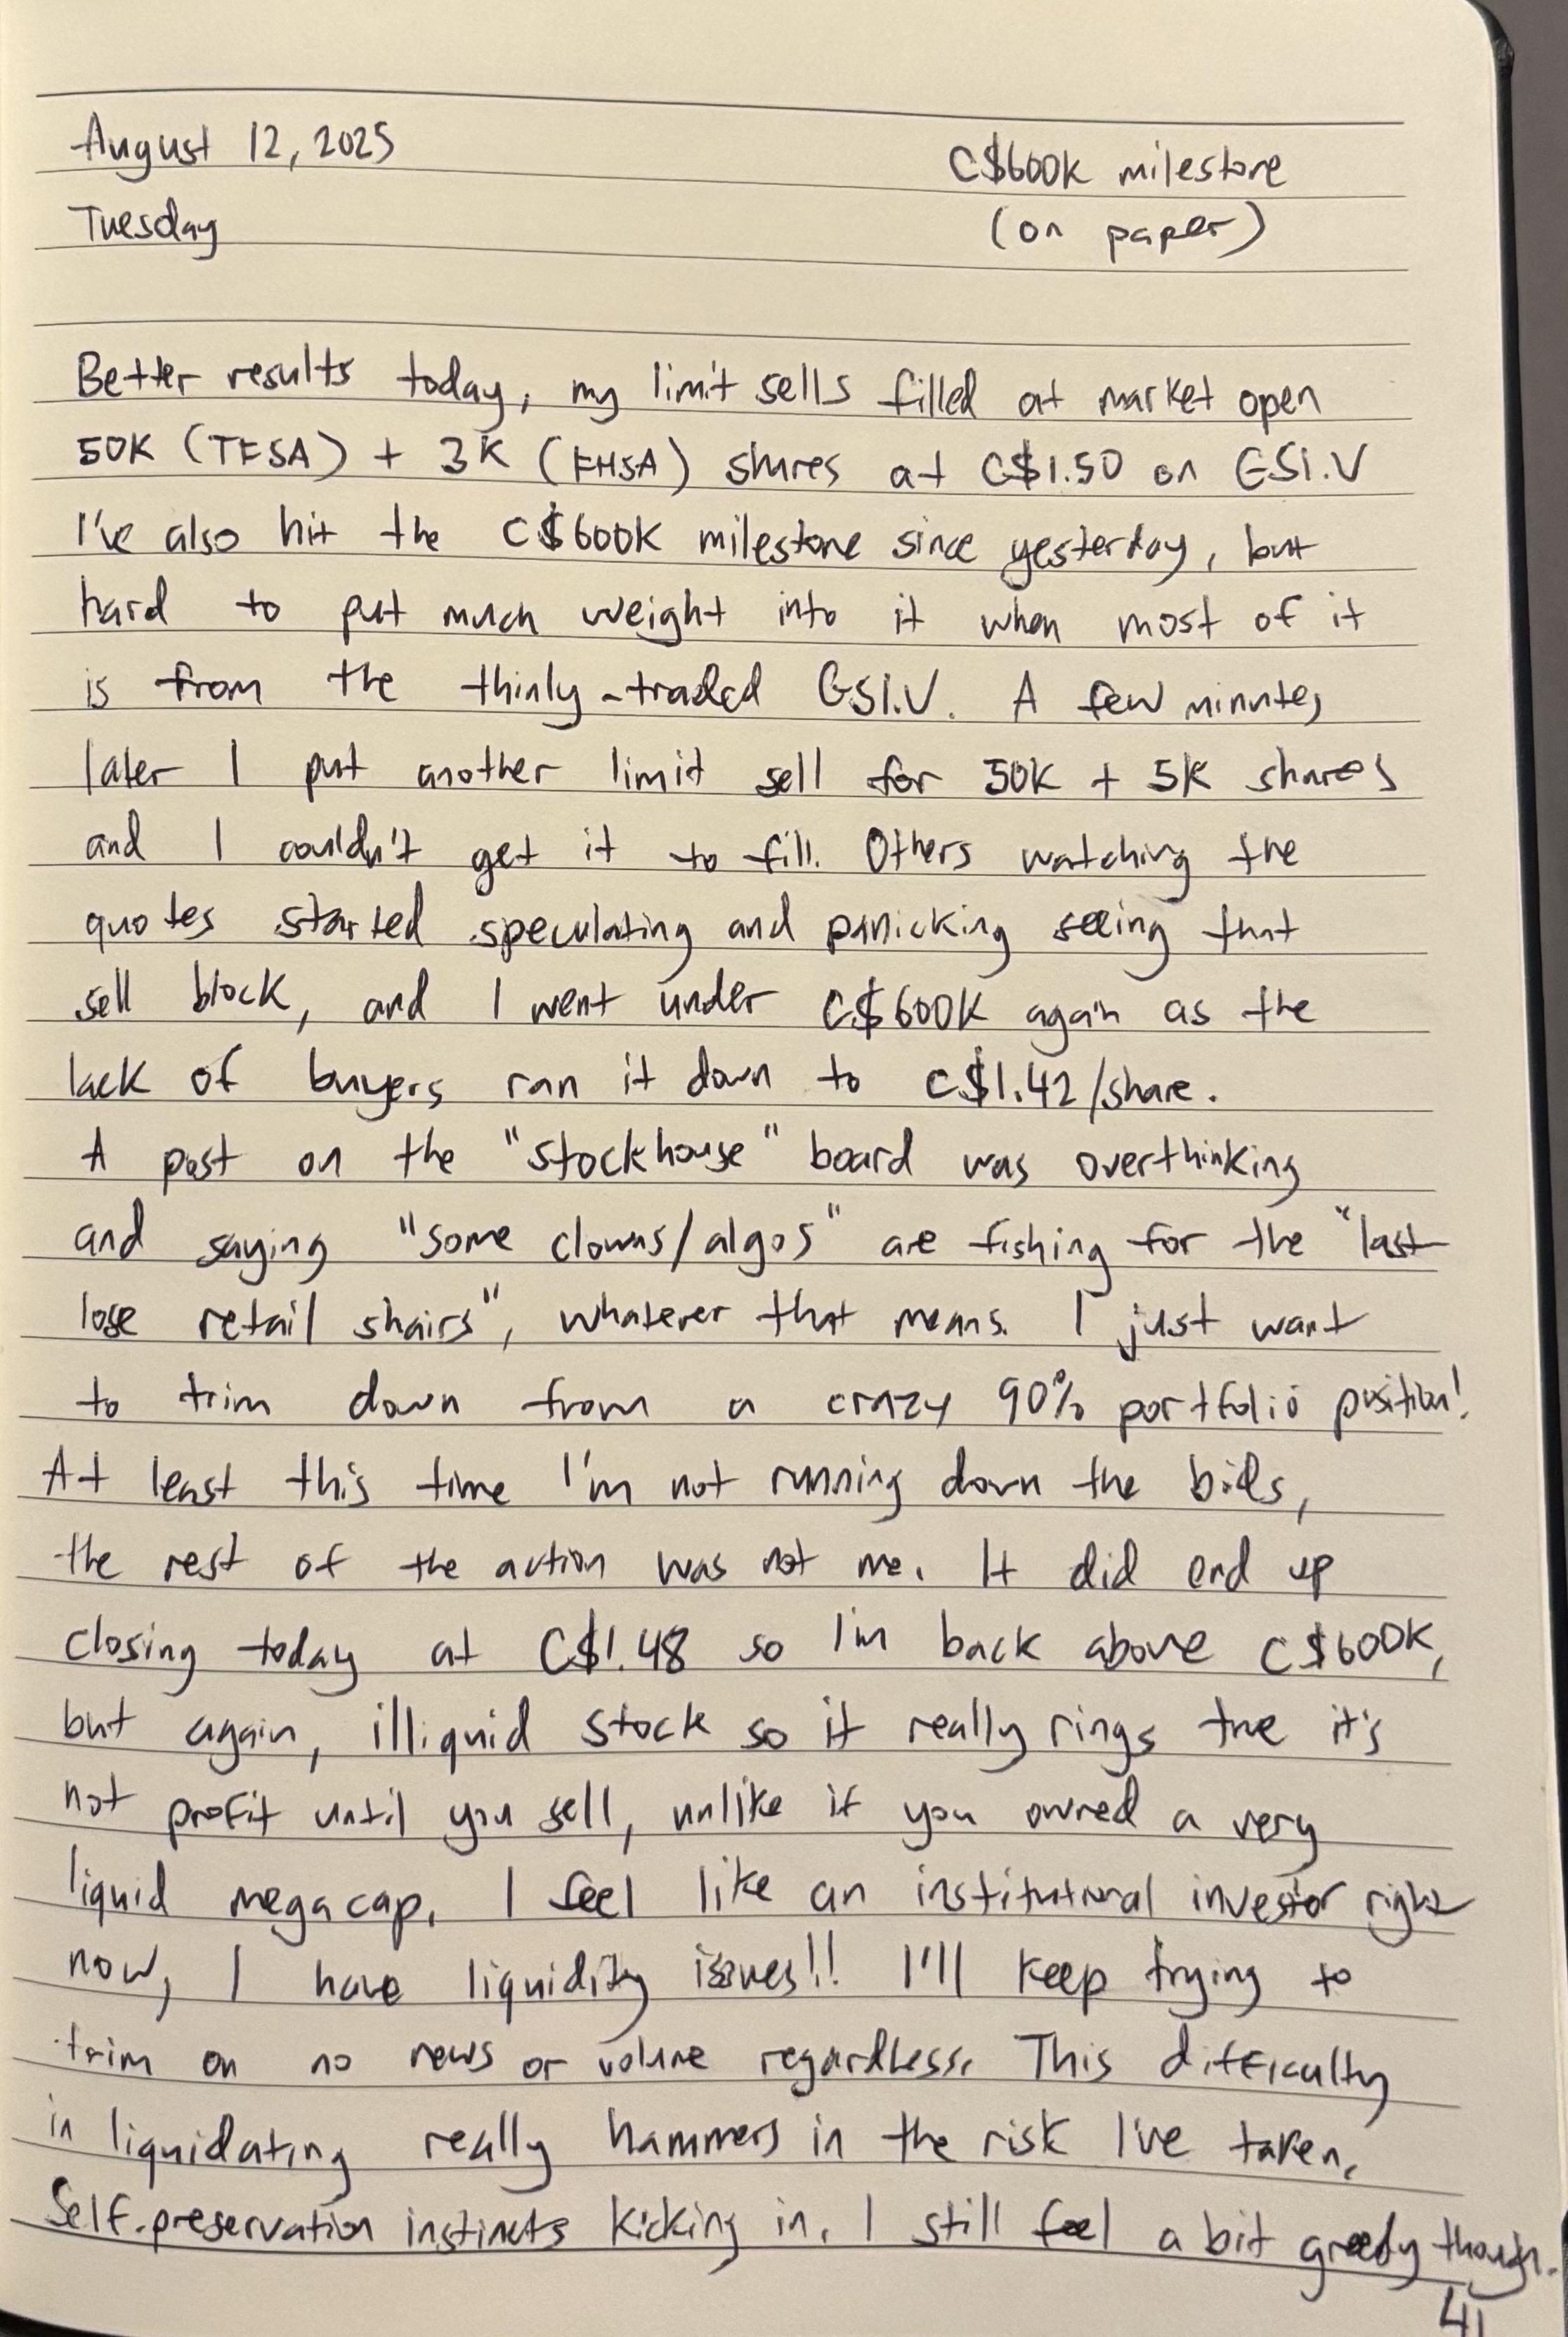 August 12, 2025
C$600K milestone
Tuesday
(on paper)
Better results today, my limit sells filled at market open
50K (TFSA) + 3K (FHSA) shares at C$1.50 on GSI.V
I've also hit the C$600K milestone since yesterday, but
hard to put much weight into it when most of it
is from the thinly-traded GSI.V. A few minutes
later I put another limit sell for 50K + 5K shares
and I couldn't get it to fill. Others watching the
quotes started speculating and panicking seeing that
sell block, and I went under C$600K again as the
lack of buyers ran it down to C$1.42/share.
A post on the "stockhouse" board was overthinking
and saying "some clowns/algos" are fishing for the "last
lose retail shairs", whatever that means. I just want
to trim down from a crazy 90% portfolio position!
At least this time I'm not running down the bids,
the rest of the action was not me. It did end up
closing today at C$1.48 so I'm back above C$600K,
but again, illiquid stock so it really rings true it's
not profit until you sell, unlike if you owned a very
liquid megacap. I feel like an institutional investor right
now, I have liquidity issues!! I'll keep trying to
trim on no news or volume regardless. This difficulty
in liquidating really hammers in the risk I've taken.
Self-preservation instincts kicking in. I still feel a bit greedy though.
41